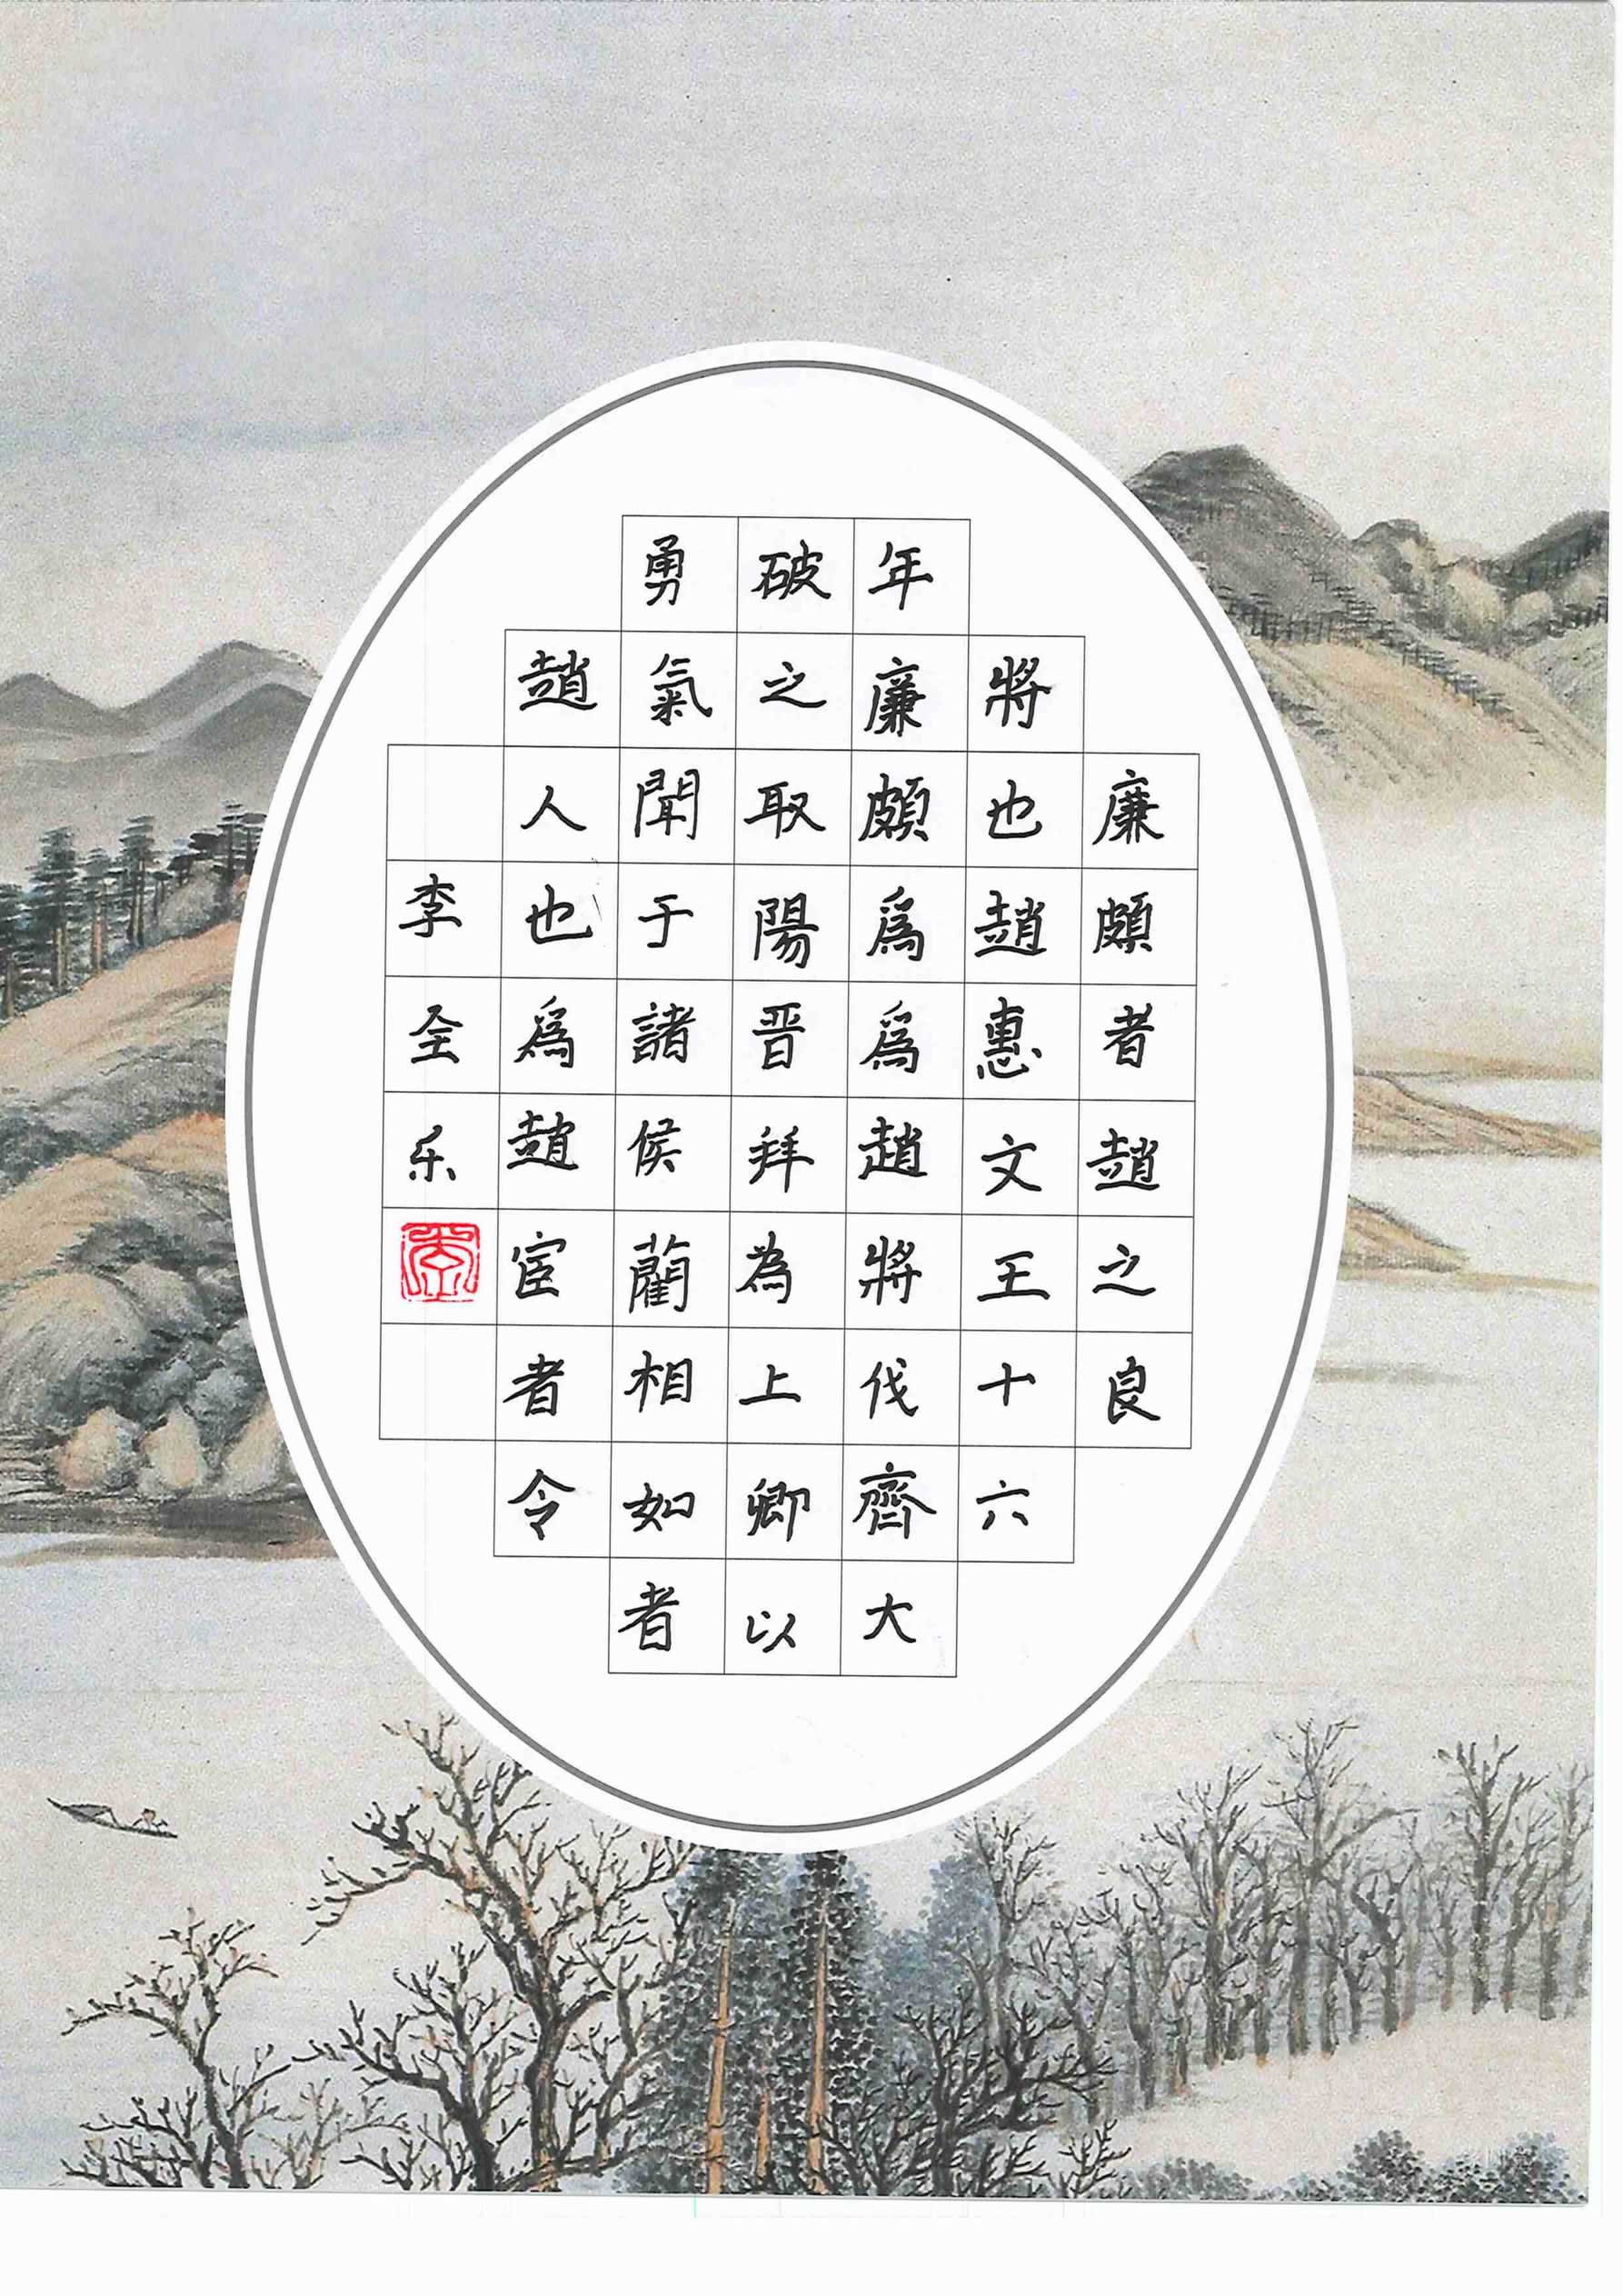 廉頗者趙之良
將也趙惠文王十六
年廉頗爲爲趙將伐齊大
破之取陽晋拜為上卿以
勇氣聞于諸侯藺相如者
趙人也爲趙宦者令
李全乐